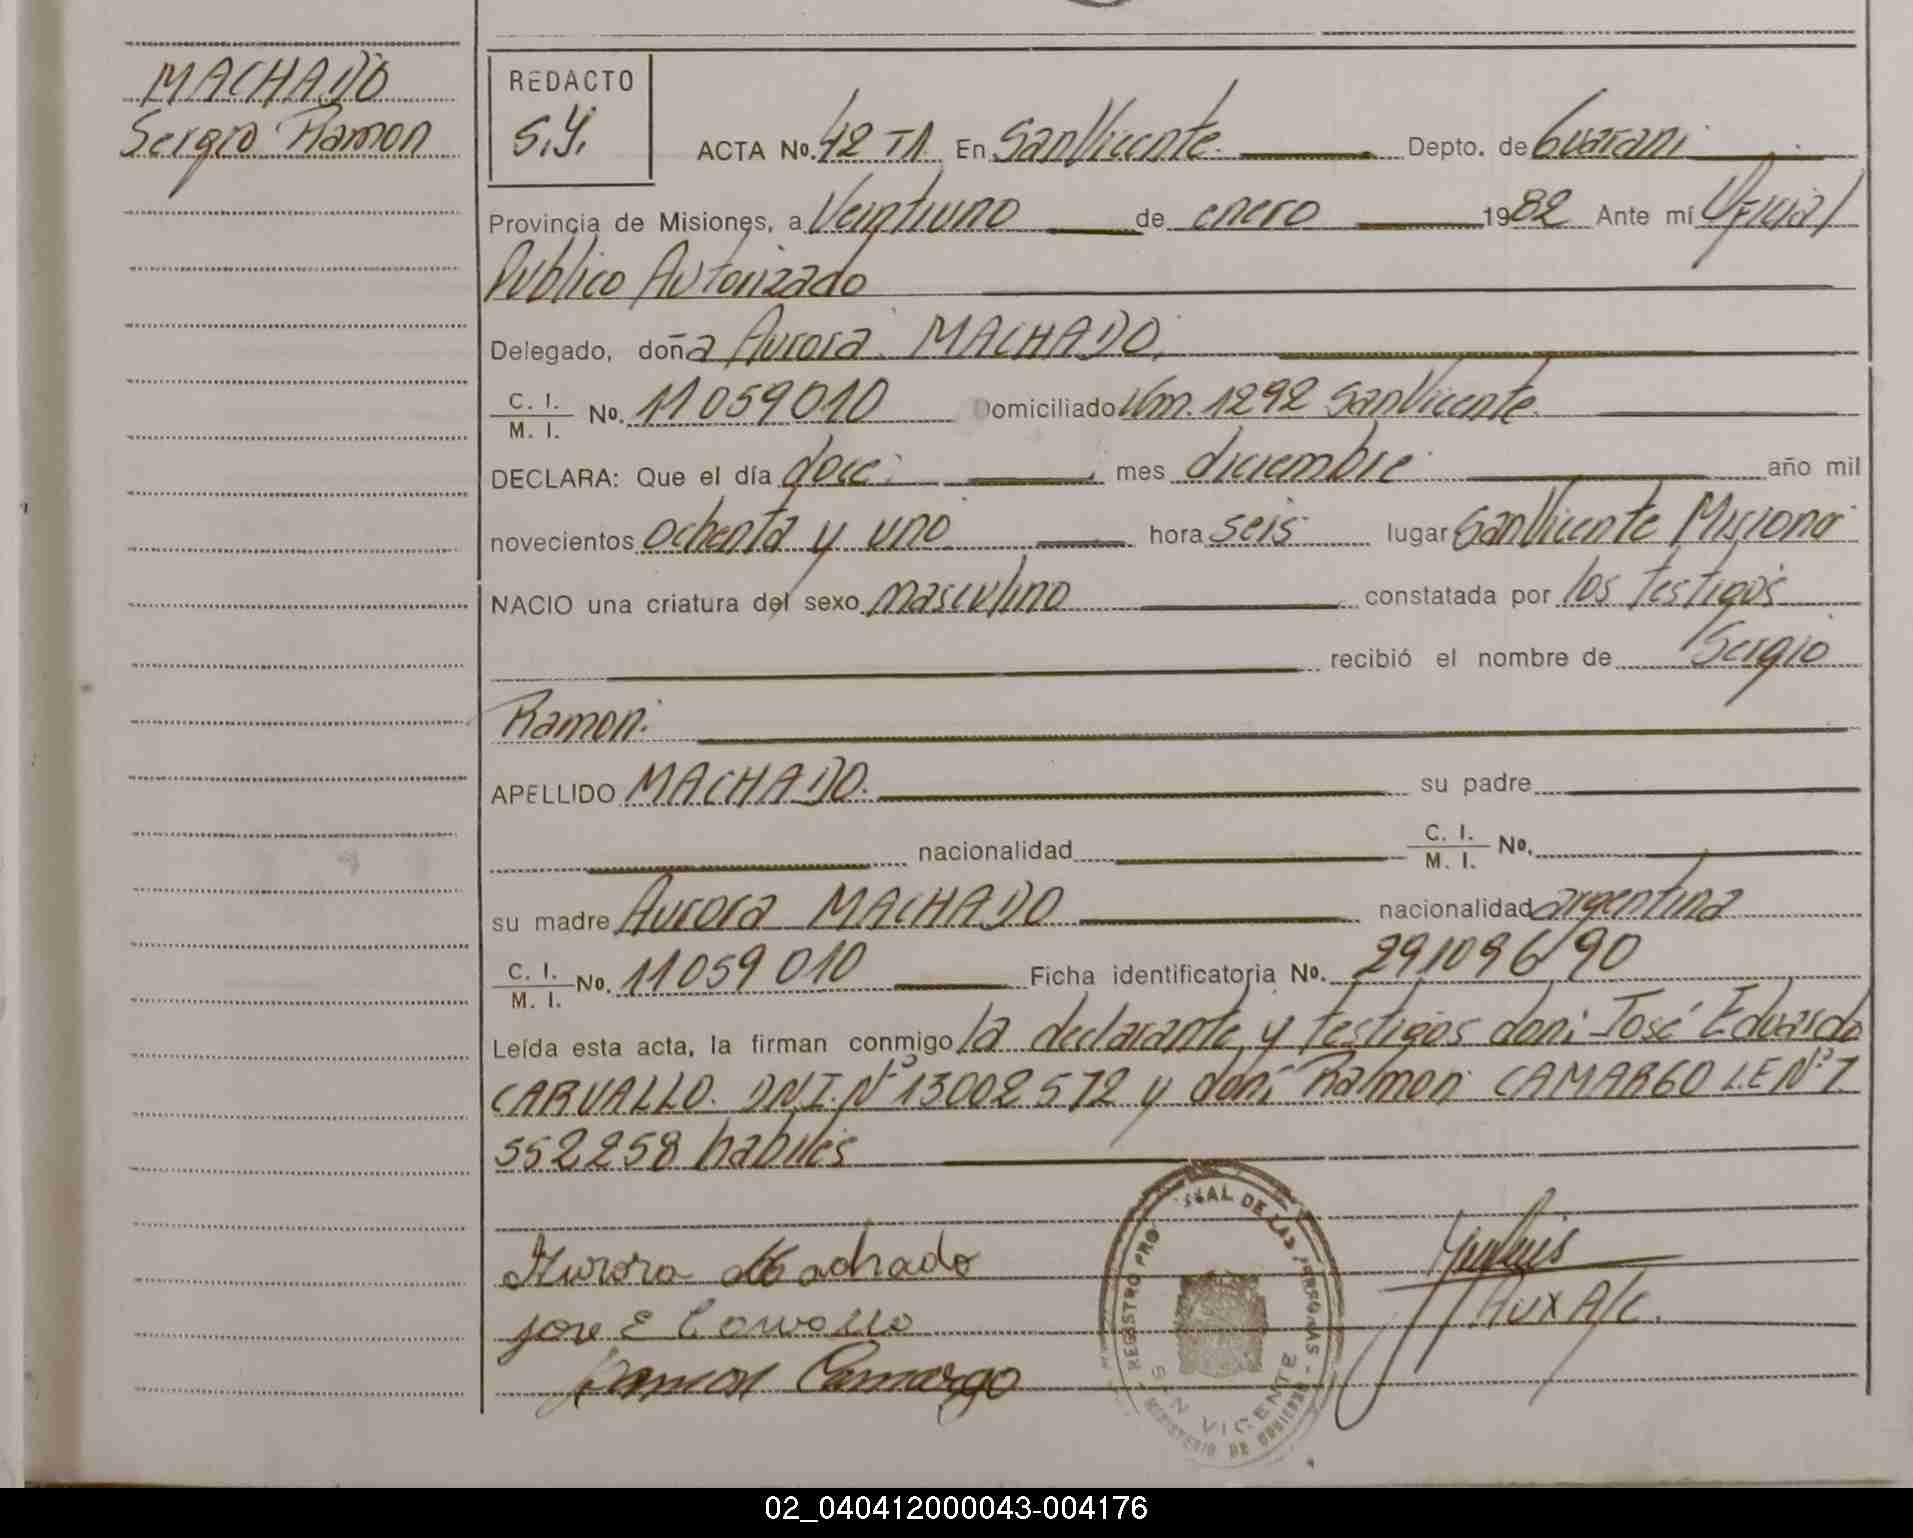 MACHADO
Sergio Ramon
REDACTO
S.Y.
ACTA No. 42 T1 En San Vicente Depto. de Guarani
Provincia de Misiones, a Veintiuno de enero 1982 Ante mí Oficial
Publico Autorizado
Delegado, doña Aurora MACHADO.
C. I.
M. I. No. 11 059 010 Domiciliado Km. 1292 San Vicente
DECLARA: Que el día doce mes diciembre año mil
novecientos ochenta y uno hora seis lugar San Vicente Misiones
NACIO una criatura del sexo masculino constatada por los testigos
recibió el nombre de Sergio
Ramon
APELLIDO MACHADO. su padre
nacionalidad C. I.
M. I. No.
su madre Aurora MACHADO nacionalidad argentina
C. I.
M. I. No. 11 059 010 Ficha identificatoria No. 291096/90
Leída esta acta, la firman conmigo la declarante y testigos don: José Eduardo
CARVALLO. DNI. Nº 13002572 y don: Ramon CAMARGO LE Nº 7
552258 habiles
Aurora Machado
Jose E Carvallo
Ramon Camargo
Aux A/C.
REGISTRO PRO SIAL DE LAS PERSONAS - MINISTERIO DE GOBIERNO
SAN VICENTE
02_040412000043-004176